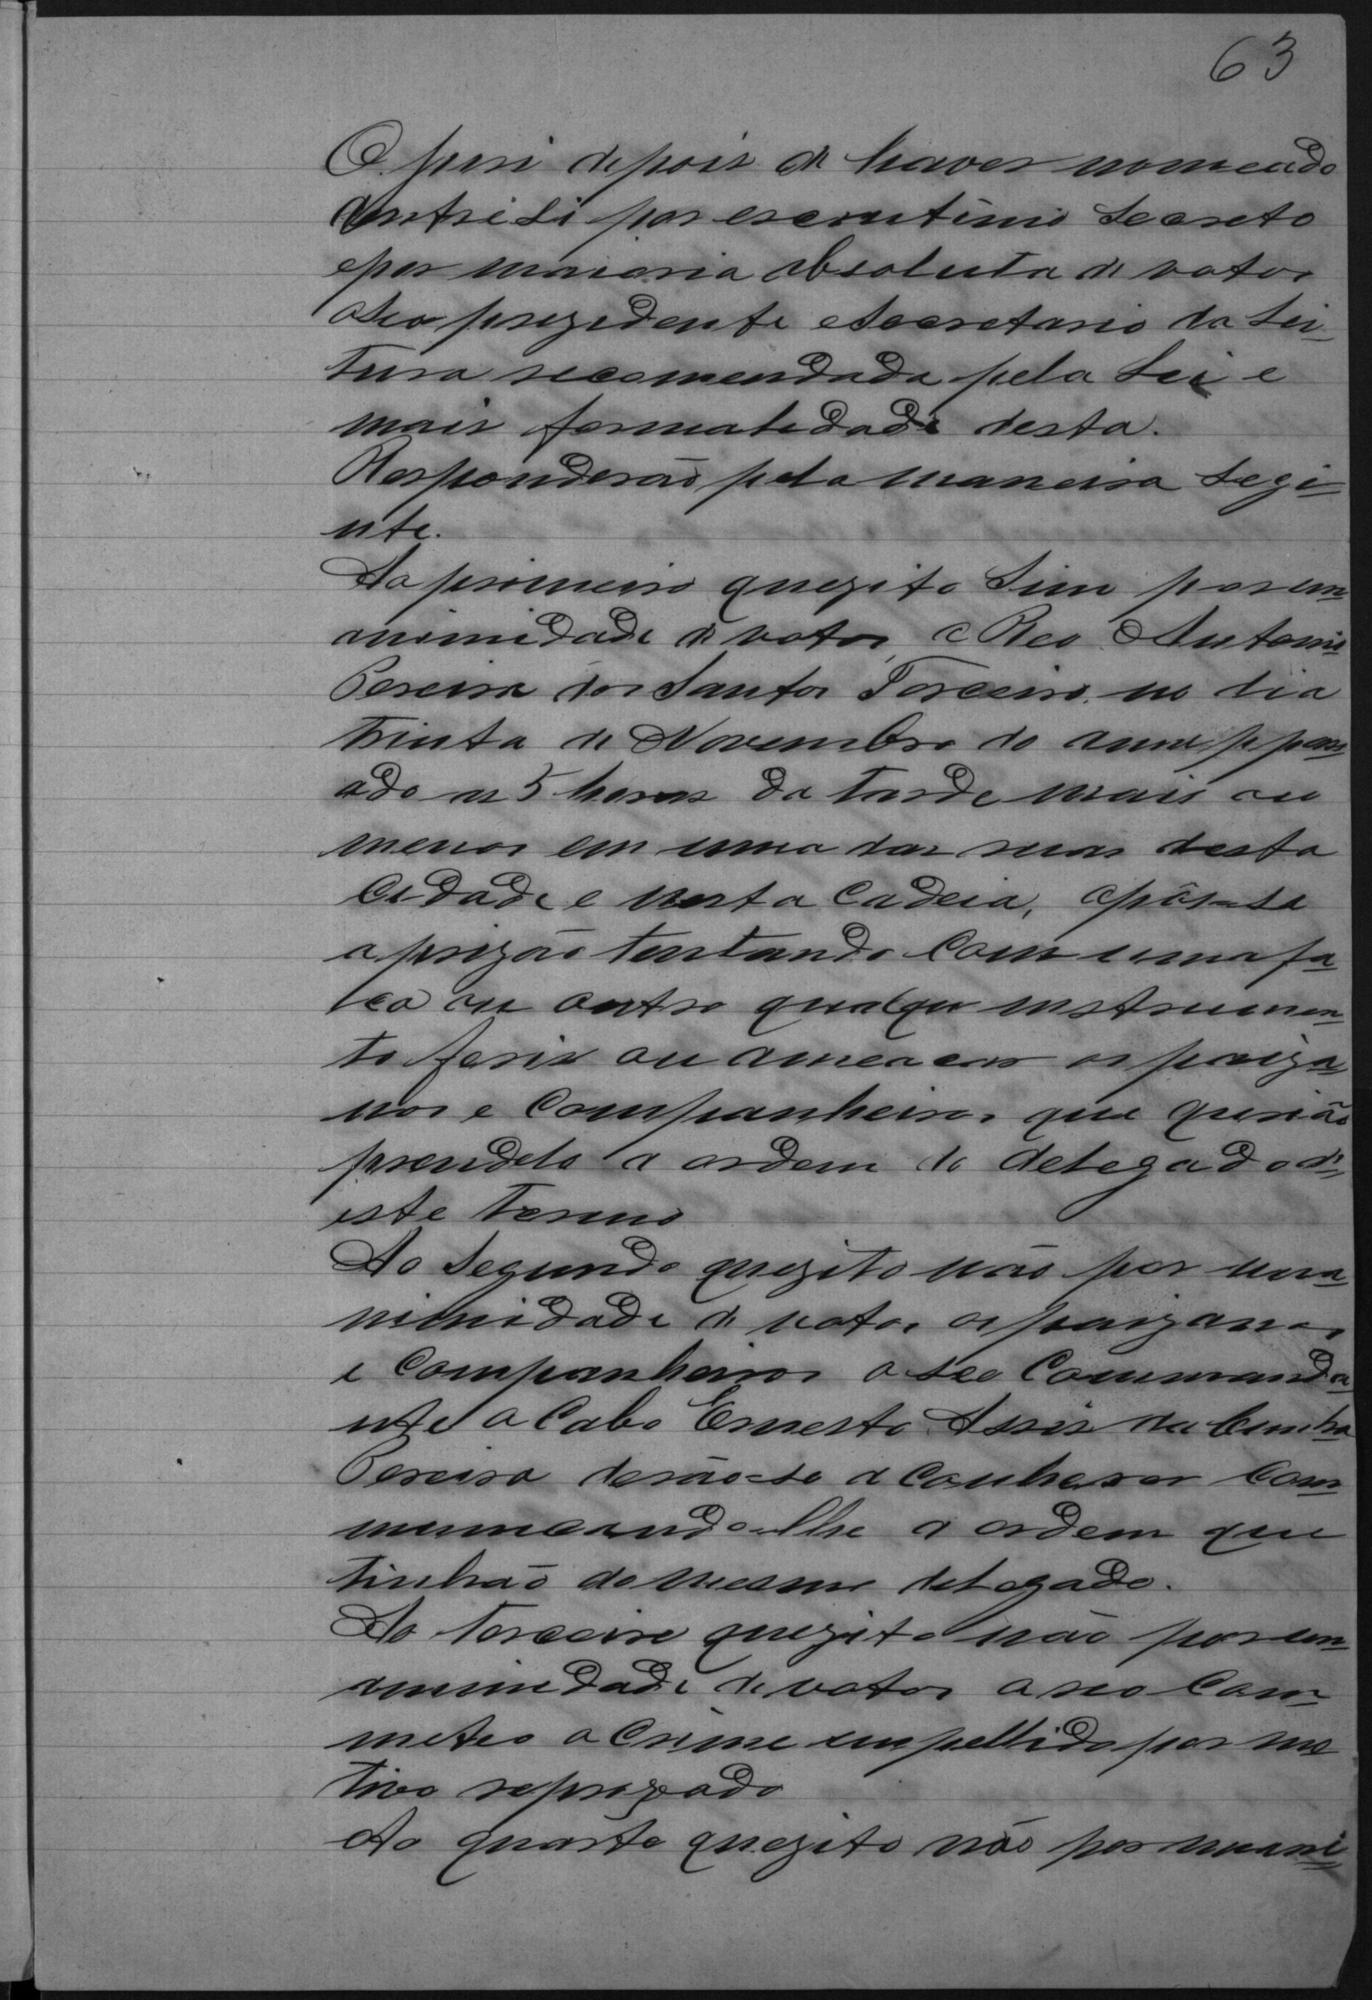 63
O juri depois de haver nomeado
dentre si por escrutinio secreto
e por maioria absoluta de votos
o seo prezidente e secretario da lei=
tura recomendada pela lei e
mais formalidade desta.
Responderão pela maneira segi=
nte.
Ao primeiro quezito sim por un=
animidade de votos, o Reo Antonio
Pereira dos Santos Terceiro, no dia
trinta de Novembro do anno p pass=
ado as 5 horas da tarde mais ou
menos em uma das ruas desta
Cidade e nesta Cadeia, opôs=se
a prizão tentando com uma fa=
ca ou outro qualqur instrumen=
to ferir ou ameacar os paiza=
nos e Companheiros que querião
prendelo a ordem do delegado d=
este termo
Ao segundo quezito não por una=
nimidade de votos os paizanos
e Companheiros o seo Commanda=
nte o Cabo Ernesto Assis da Cunha
Pereira derão=se a conhecer com=
municando-lhe a ordem que
tinhão do mesmo delegado.
Ao terceiro quezito não por un=
animidade de votos o reo Com=
meteo o Crime impellido por mo
tivo reprovado
Ao quarto quezito não por unani=